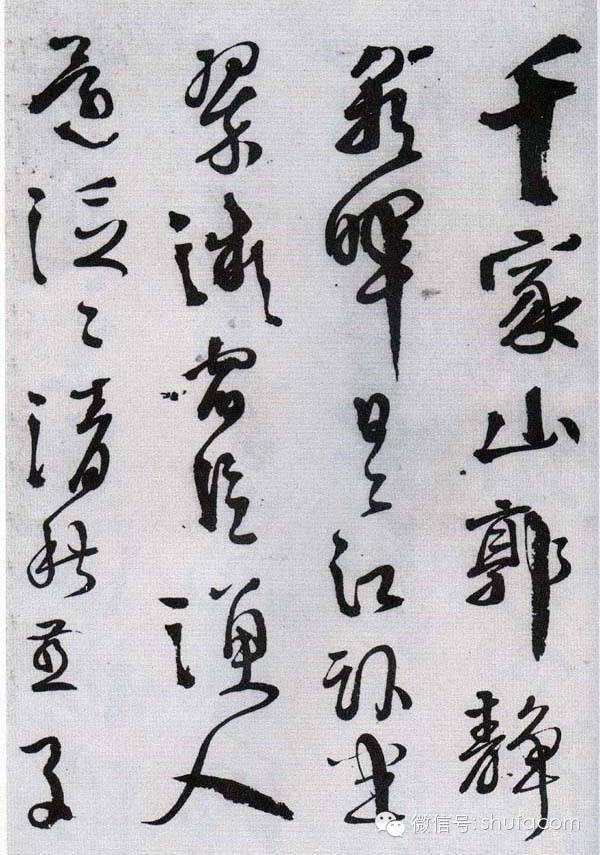 千家山郭靜
朝暉日々江樓坐
翠微宿信漁人
還泛々清秋燕子
微信号: shufa.com